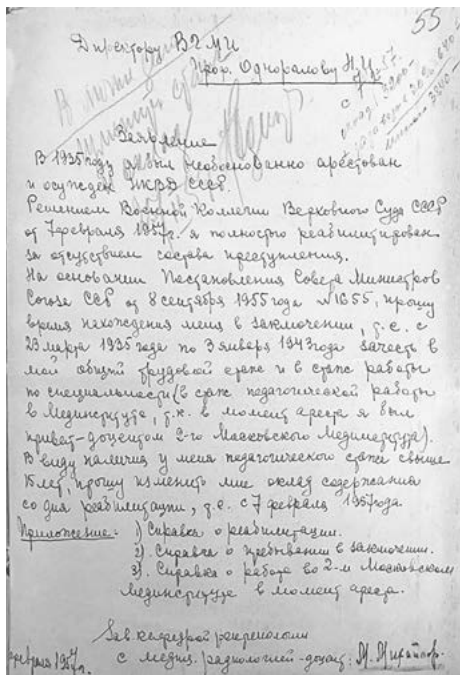 55
Директору ВГМИ
Проф. Одноралову Н.И.
Заявление
В 1935 году я был необоснованно арестован
и осужден НКВД СССР.
Решением Военной Коллегии Верховного Суда СССР
от 7 февраля 1957 г. я полностью реабилитирован
за отсутствием состава преступления.
На основании Постановления Совета Министров
Союза ССР от 8 сентября 1955 года №1655, прошу
время нахождения меня в заключении, т.е. с
23 марта 1935 года по 3 января 1943 года зачесть в
мой общий трудовой стаж и в стаж работы
по специальности (в стаж педагогической работы
в Мединституте, т.к. в момент ареста я был
приват-доцентом 2-го Московского Мединститута).
В виду наличия у меня педагогического стажа свыше
15 лет, прошу изменить мне оклад содержания
со дня реабилитации, т.е. с 7 февраля 1957 года.
Приложение: 1) Справка о реабилитации.
2). Справка о пребывании в заключении.
3). Справка о работе во 2-м Московском
Мединституте в момент ареста.
Зав. кафедрой рентгенологии
с медиц. радиологией - доцент:
февраля 1957 г.